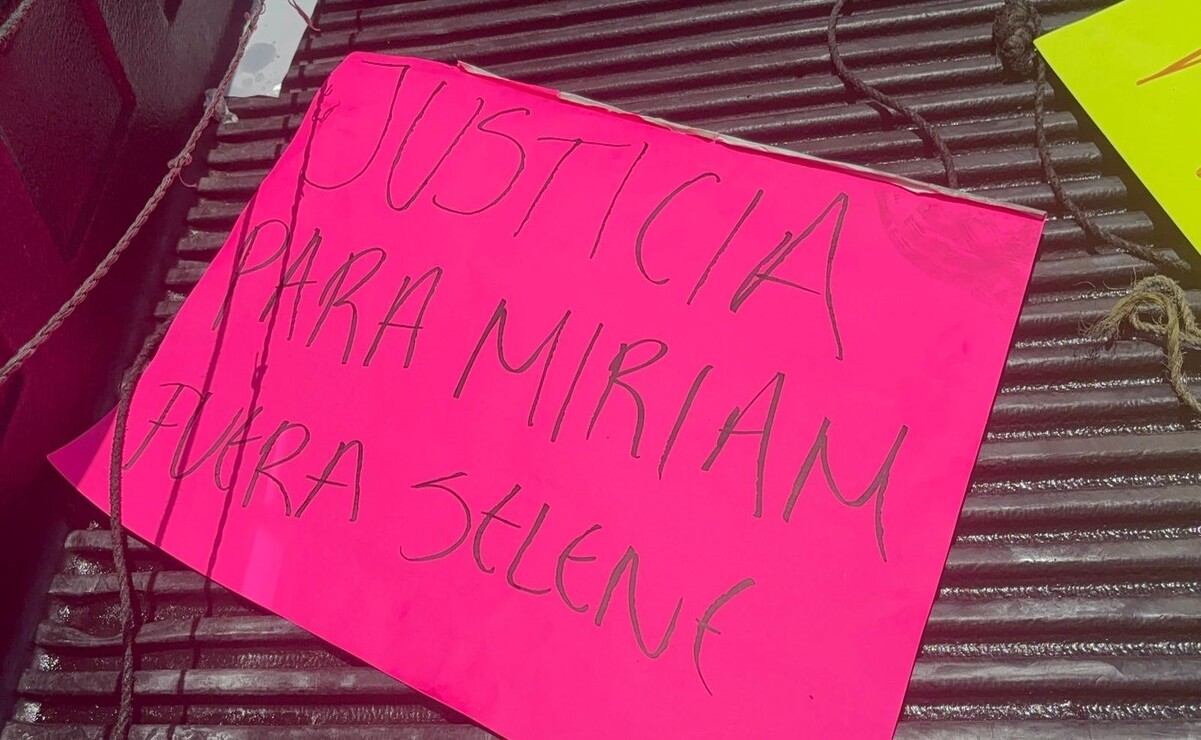 JUSTICIA
PARA MIRIAM
FUERA SELENE